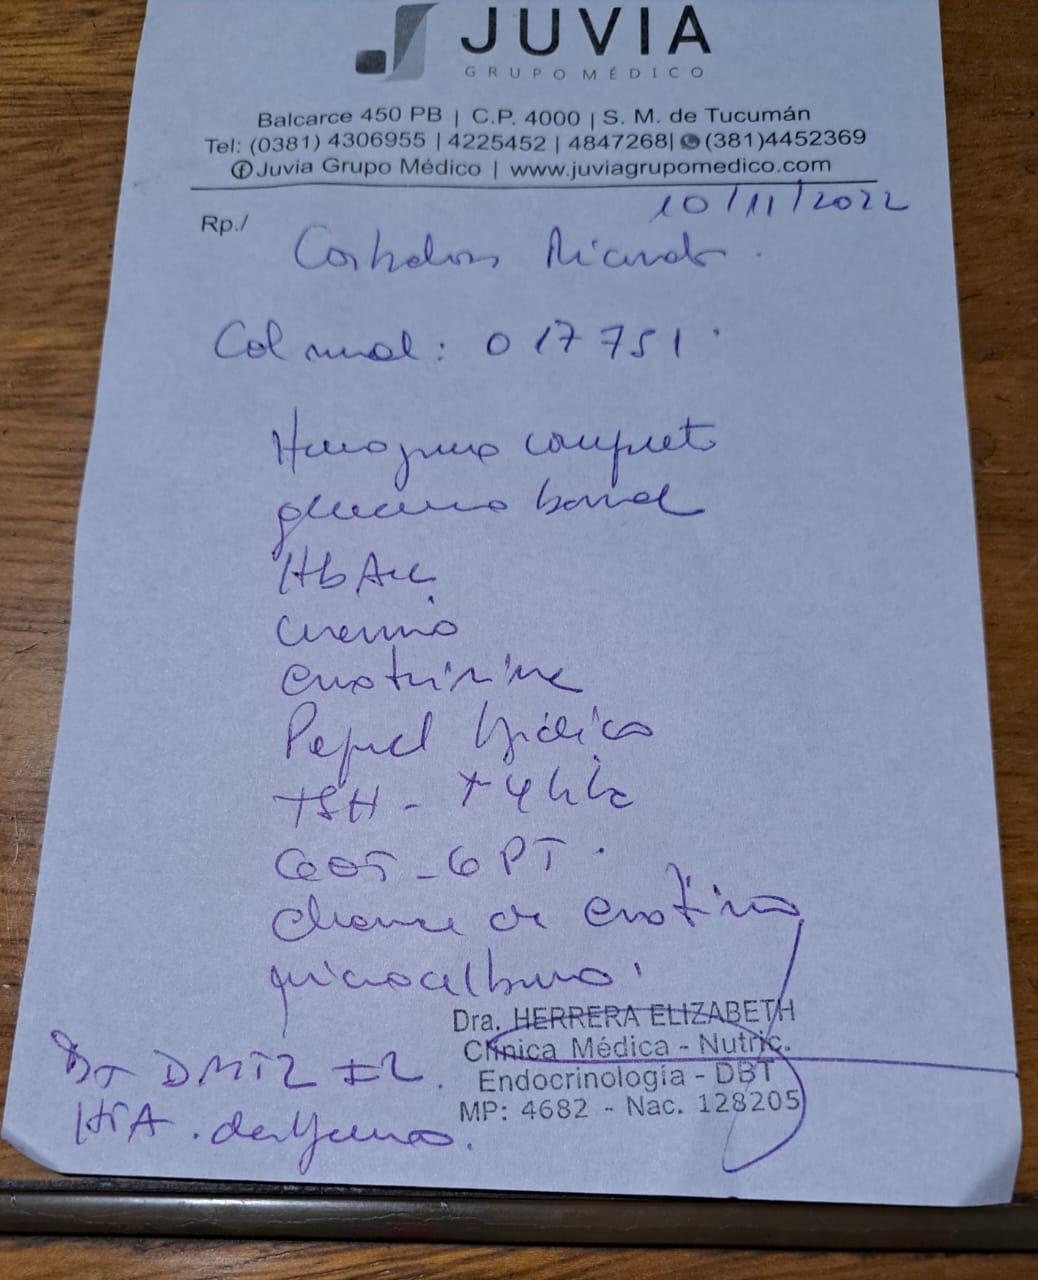 JUVIA
GRUPO MÉDICO
Balcarce 450 PB | C.P. 4000 | S. M. de Tucumán
Tel: (0381) 4306955 | 4225452 | 4847268| (381)4452369
Juvia Grupo Médico | www.juviagrupomedico.com
10/11/2022
Rp./
Ricardo.
017751
Hemograma completo
glucemia basal
HbA1c
uremia
creatinina
Perfil lipídico
TSH - T4 libre
GOT - GPT.
clearance de creatinina
microalbumi
Dra. HERRERA ELIZABETH
Clínica Médica - Nutric.
Endocrinología - DBT
MP: 4682 - Nac. 128205
DMT2
HTA.